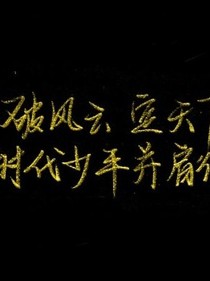 破风云 定天下
时代少年并肩